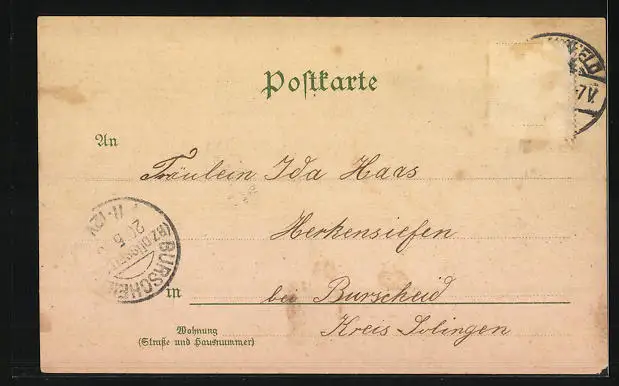 Postkarte
An
Fräulein Ida Haas
Herkensiefen
in bei Burscheid
Kreis Solingen
Wohnung
(Straße und Hausnummer)
BURSCHEID
11-12V
7V.